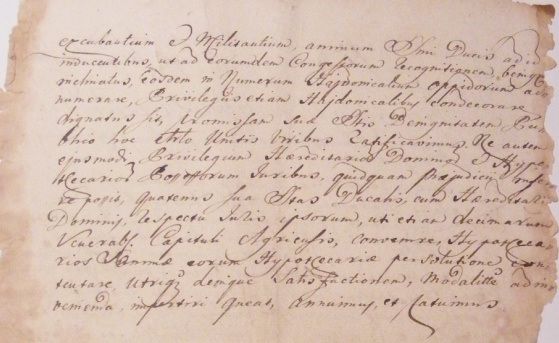 excubantium et Militantium, animum Sṁi Ducis ad id
inducentibus, ut ad eorumdem Congessorum recognitionem, benigne
inclinatus, eosdem in Numerum Hajdonicalium oppidorum ad
numerare, Privilegys etiam Hajdonicalibus Condecorare
dignatus sit, promissam suæ Sttis benignitatem, Præ
hoc Artlo Unitis viribus ratificavimus, Ne autem
ejusmodi Privilegium Hæreditarior Dominor et Hypo
thecarior Possessorum Juribus, quidquam præjudicy infer
re possit, quatenus sua Sttas Ducalis, cum Hæreditarys
Dominis, respectu Juris ipsorum, uti etiam decimarum
Venerabs Capituli Agriensis, convenire, Hypotheca
rios Summæ eorum Hypothecariæ persolutione con
tentare, Utriqz denique Satisfactionem, Modalitte ad in
venienda, impertiri queat, annuimus, et statuimus